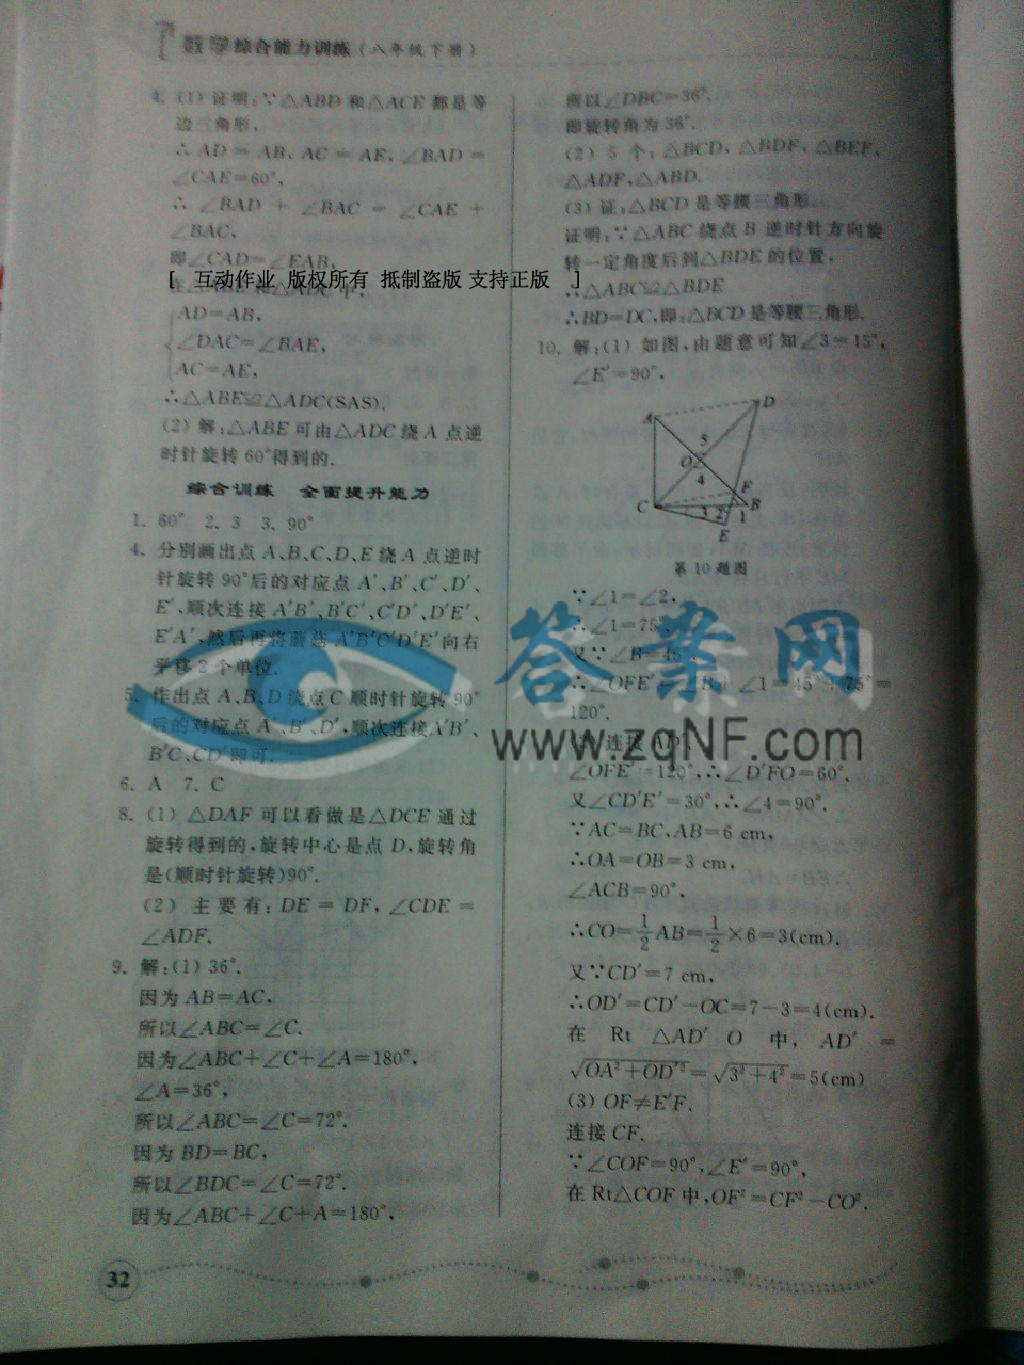 数学综合能力训练(八年级下册)
4. (1) 证明:∵△ABD 和△ACE 都是等
边三角形.
∴ AD = AB, AC = AE, ∠BAD =
∠CAE=60°,
∴ ∠BAD + ∠BAC = ∠CAE +
∠BAC,
即∠CAD=∠EAB,
[ 互动作业 版权所有 抵制盗版 支持正版 ]
AD=AB,
∠DAC=∠BAE,
AC=AE,
∴△ABE≌△ADC(SAS).
(2) 解:△ABE 可由△ADC 绕 A 点逆
时针旋转 60°得到的.
综合训练 全面提升能力
1. 60° 2. 3 3. 90°
4. 分别画出点 A、B、C、D、E 绕 A 点逆时
针旋转 90°后的对应点 A′、B′、C′、D′、
E′,顺次连接 A′B′、B′C′、C′D′、D′E′、
E′A′,然后再将蘑菇 A′B′C′D′E′向右
平移 2 个单位.
5. 作出点 A、B、D 绕点 C 顺时针旋转 90°
后的对应点 A′、B′、D′,顺次连接A′B′、
B′C、CD′即可.
6. A 7. C
8. (1) △DAF 可以看做是△DCE 通过
旋转得到的,旋转中心是点 D,旋转角
是(顺时针旋转)90°.
(2) 主要有: DE = DF, ∠CDE =
∠ADF.
9. 解:(1) 36°.
因为 AB=AC,
所以∠ABC=∠C.
因为∠ABC+∠C+∠A=180°,
∠A=36°,
所以∠ABC=∠C=72°.
因为 BD=BC,
所以∠BDC=∠C=72°.
因为∠ABC+∠C+A=180°,
所以∠DBC=36°.
即旋转角为 36°.
(2) 5 个: △BCD, △BDF, △BEF,
△ADF, △ABD.
(3) 证:△BCD 是等腰三角形.
证明:∵△ABC 绕点 B 逆时针方向旋
转一定角度后到△BDE 的位置,
∴△ABC≌△BDE
∴BD=DC,即:△BCD 是等腰三角形.
10. 解:(1) 如图,由题意可知∠3=15°,
∠E′=90°,
A D
5
O
4
F
C 3 2 1 B
E
第 10 题图
∵∠1=∠2,
∴∠1=75°
又∵∠B=45°
∴∠OFE′= ∠1=45°+75°=
120°.
连接
∠OFE′=120°,∴∠D′FO=60°.
又∠CD′E′=30°,∴∠4=90°.
∵AC=BC,AB=6 cm,
∴OA=OB=3 cm,
∠ACB=90°,
∴CO=1/2AB=1/2×6=3(cm).
又∵CD′=7 cm,
∴OD′=CD′−OC=7−3=4(cm).
在 Rt △AD′ O 中, AD′ =
√OA²+OD′²=√3²+4²=5(cm)
(3) OF≠E′F.
连接 CF.
∵∠COF=90°,∠E′=90°,
在 Rt△COF 中,OF²=CF²−CO².
答案网
www.zqNF.com
32